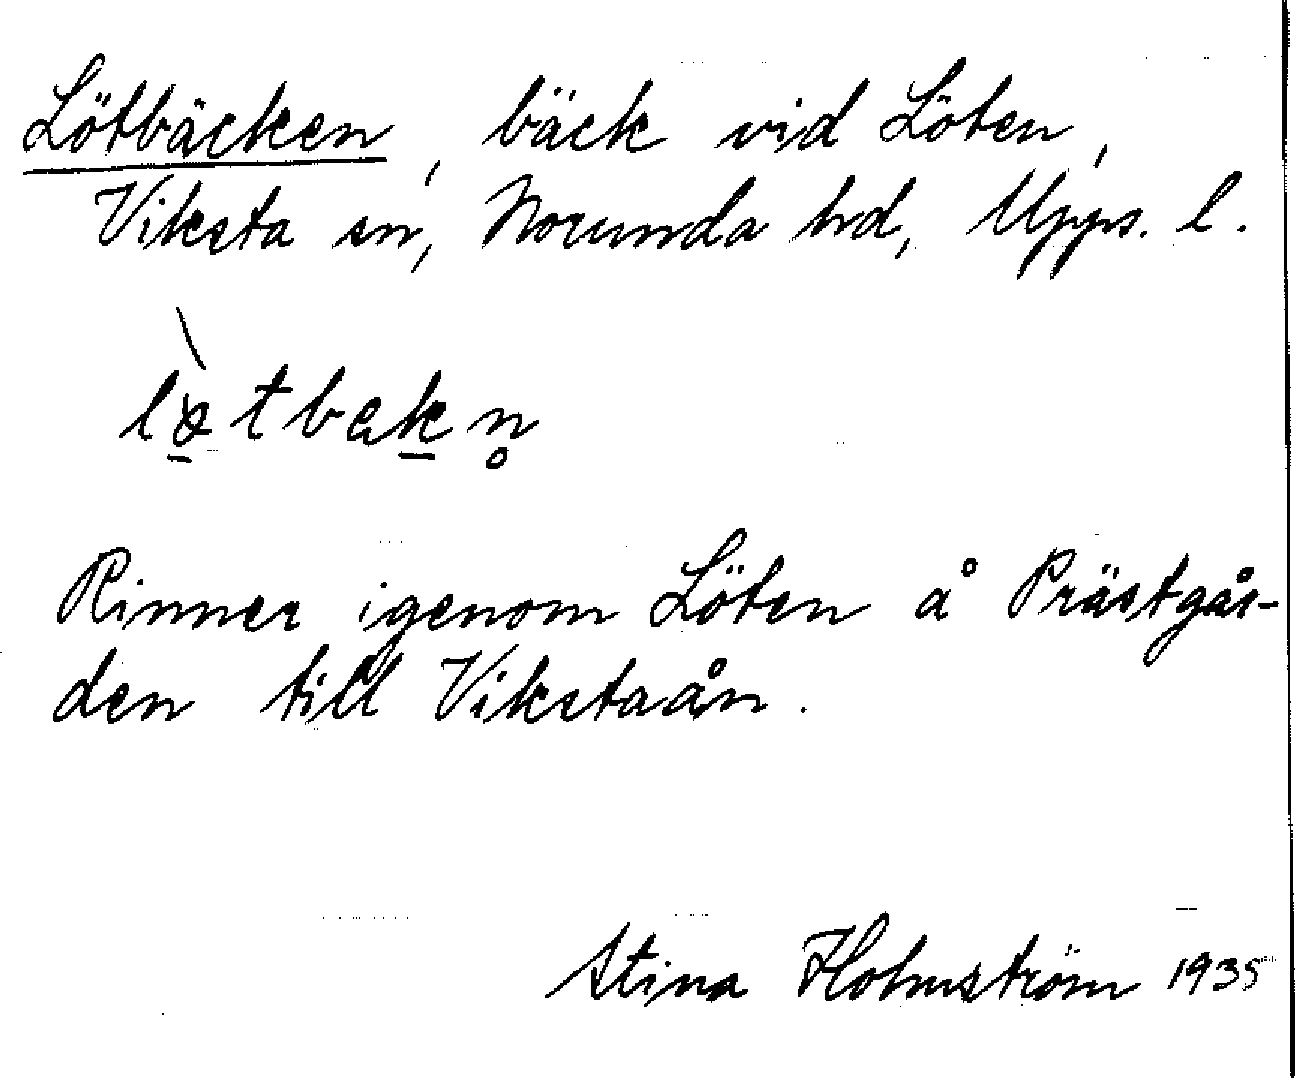 Lötbäcken, bäck vid Löten,
Viksta sn, Norunda hd, Upps. l.
Rinner igenom Löten å Prästgår-
den till Vikstaån.
Stina Holmström 1935